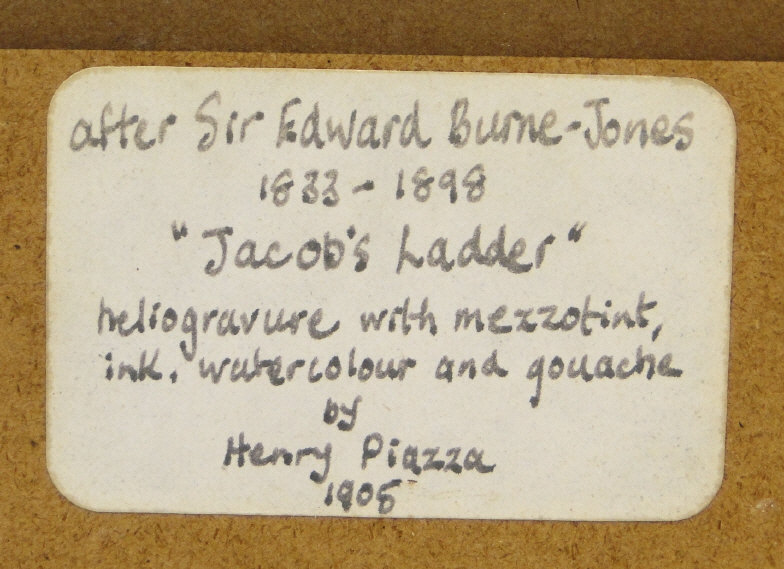 after Sir Edward Burne-Jones
1833 - 1898
"Jacob's Ladder"
heliogravure with mezzotint,
ink, watercolour and gouache
by
Henry Piazza
1905